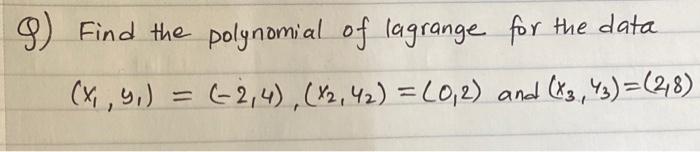 Q) Find the polynomial of lagrange for the data
(x₁, y₁) = (-2,4), (x₂, y₂) = (0,2) and (x₃, y₃) = (2,8)